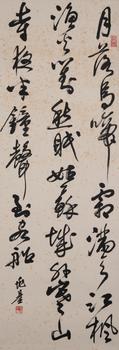 月落烏啼霜滿天江楓
漁火對愁眠姑蘇城外寒山
寺夜半鐘聲到客船